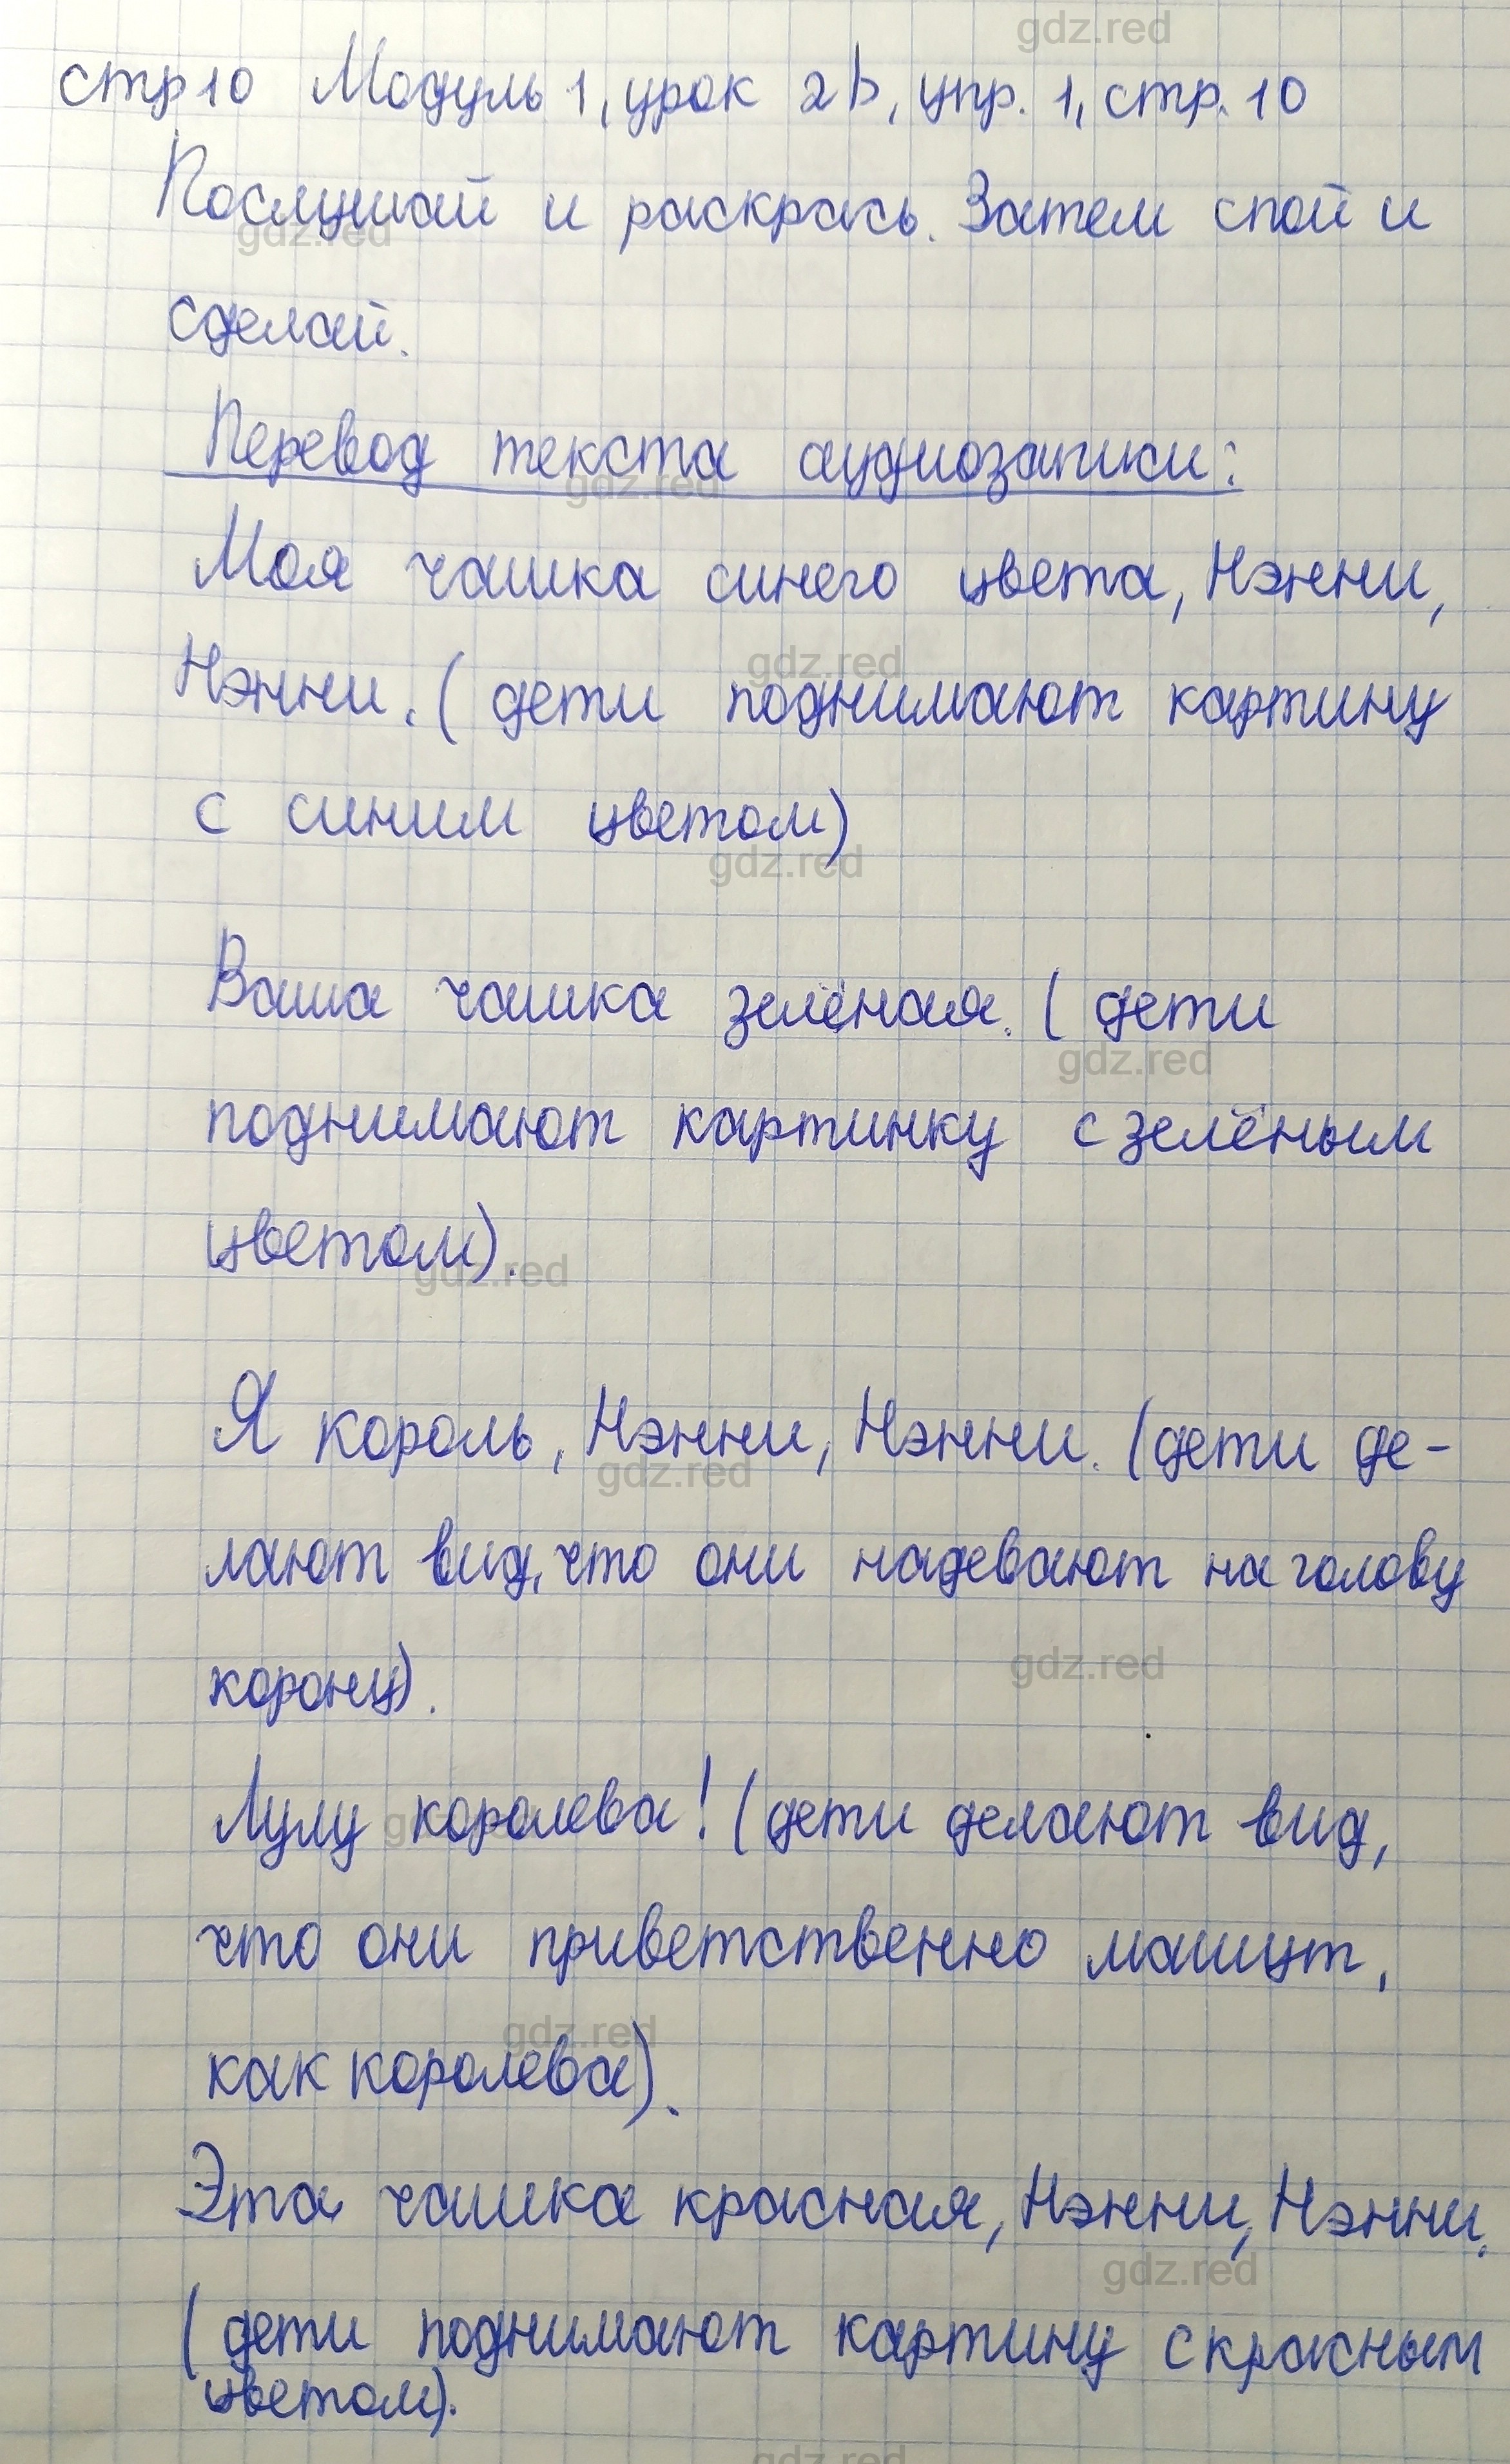 gdz.red
стр 10 Модуль 1, урок 2b, упр. 1, стр. 10
Послушай и раскрась. Затем спой и
gdz.red
сделай.
Перевод текста аудиозаписи:
gdz.red
Моя чашка синего цвета, Нэнни,
gdz.red
Нэнни. (дети поднимают картину
с синим цветом)
gdz.red
Ваша чашка зелёная. (дети
gdz.red
поднимают картинку с зелёным
цветом).
gdz.red
Я король, Нэнни, Нэнни. (дети де-
gdz.red
лают вид, что они надевают на голову
gdz.red
корону).
Лулу королева! (дети делают вид,
gdz.red
что они приветственно машут,
gdz.red
как королева).
Эта чашка красная, Нэнни, Нэнни.
gdz.red
(дети поднимают картину с красным
цветом).
gdz.red